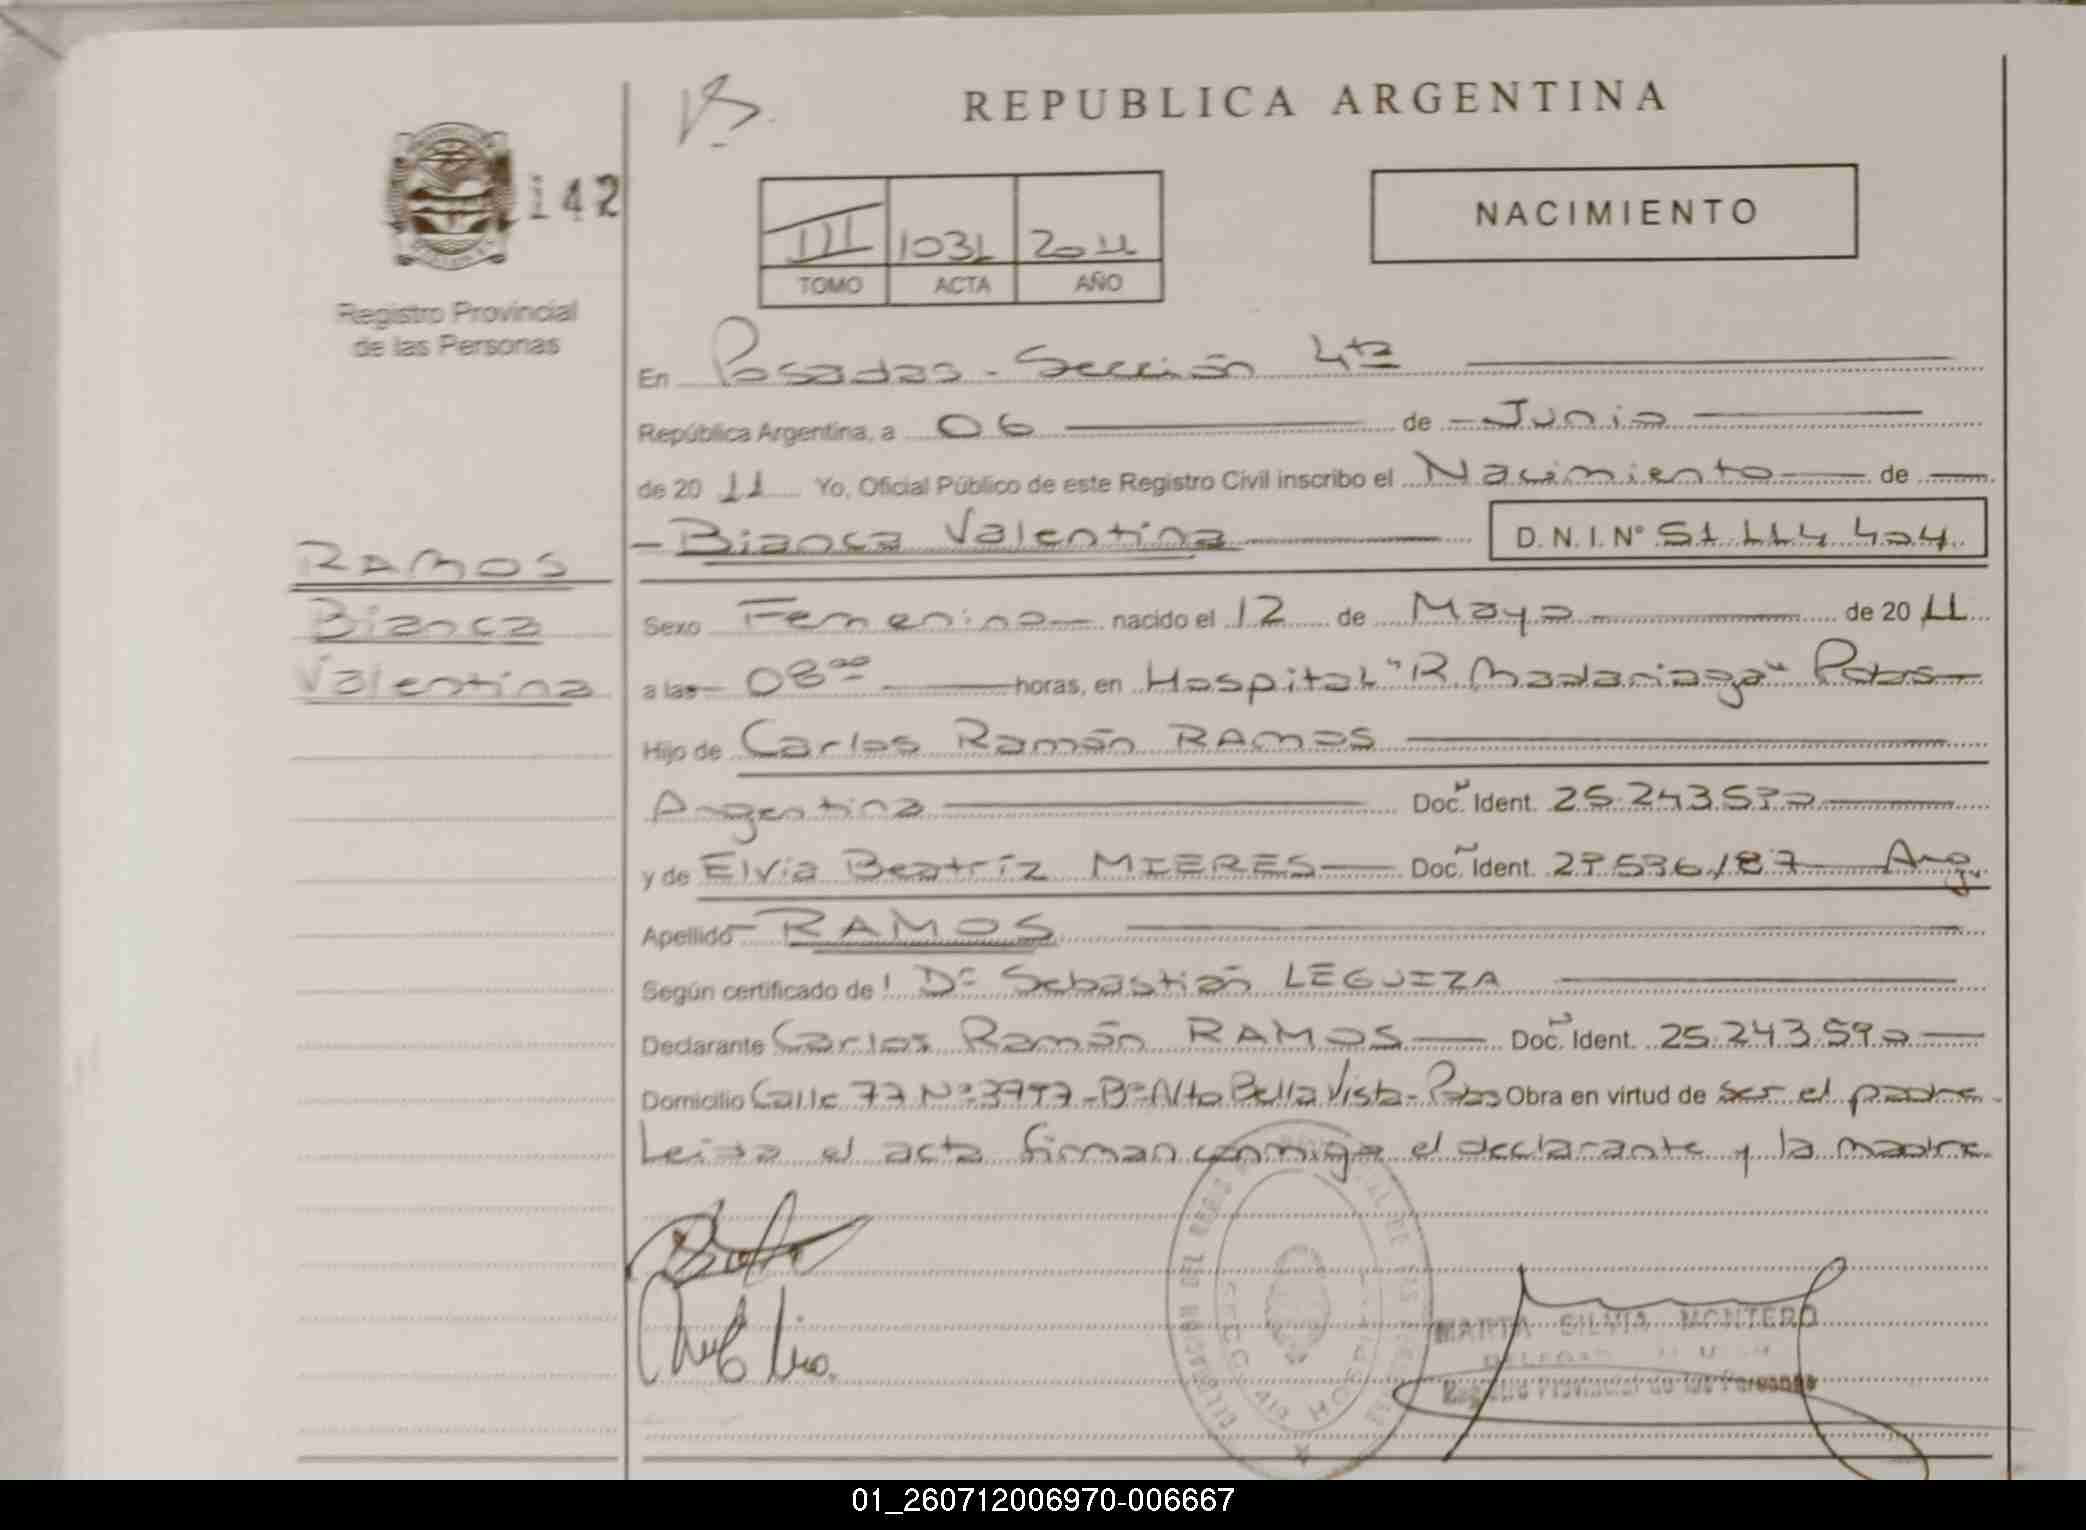 REPUBLICA ARGENTINA
142
Registro Provincial
de las Personas
III 1031 2011
TOMO ACTA AÑO
NACIMIENTO
En Posadas - Sección 4ta
República Argentina, a 06 de Junio
de 20 11 Yo, Oficial Público de este Registro Civil inscribo el Nacimiento de
Bianca Valentina D.N.I. Nº 51.114.404
RAMOS
Bianca
Valentina
Sexo Femenino nacido el 12 de Mayo de 20 11
a las 08 00 horas, en Hospital "R. Madariaga" Pdas
Hijo de Carlos Ramón RAMOS
Argentina Doc. Ident. 25.243.590
y de Elvia Beatríz MIERES Doc. Ident. Arg.
Apellido RAMOS
Según certificado de: Dr Sebastián LEGUIZA
Declarante Carlos Ramón RAMOS Doc. Ident. 25.243.590
Domicilio Calle 77 Nº - Bº Alto Bella Vista - Pdas Obra en virtud de ser el padre.
Leida el acta firman conmigo el declarante y la madre.
MARTA SILVIA MONTERO
Registro Provincial de las Personas
01_260712006970-006667